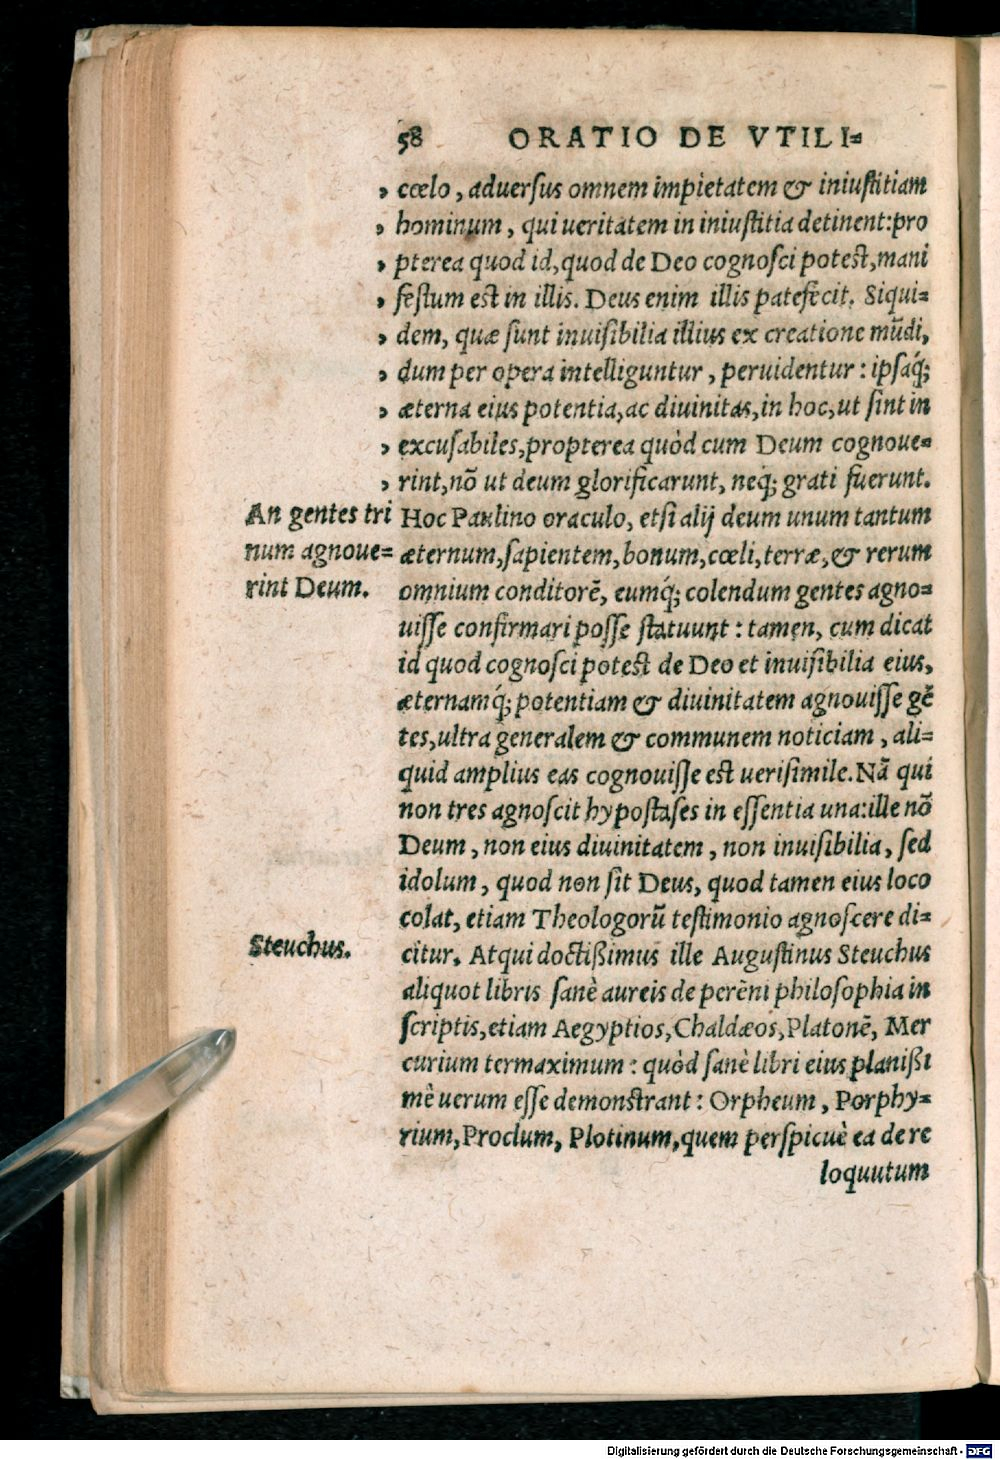 58 ORATIO DE VTILI=
, cœlo, aduersus omnem impietatem & iniustitiam
, hominum, qui ueritatem in iniustitia detinent:pro
, pterea quod id,quod de Deo cognosci potest,mani
, festum est in illis. Deus enim illis patefecit. Siqui=
, dem, quæ sunt inuisibilia illius ex creatione mūdi,
, dum per opera intelliguntur, peruidentur: ipsaq́;
, æterna eius potentia,ac diuinitas,in hoc,ut sint in
, excusabiles,propterea quòd cum Deum cognoue=
, rint,nō ut deum glorificarunt, neq́; grati fuerunt.
An gentes tri
num agnoue=
rint Deum.
Hoc Paulino oraculo, etsi alij deum unum tantum
æternum,sapientem,bonum,cœli,terræ,& rerum
omnium conditorē, eumq́; colendum gentes agno=
uisse confirmari posse statuunt: tamen, cum dicat
id quod cognosci potest de Deo et inuisibilia eius,
æternamq́; potentiam & diuinitatem agnouisse gē
tes,ultra generalem & communem noticiam, ali=
quid amplius eas cognouisse est uerisimile.Nā qui
non tres agnoscit hypostases in essentia una:ille nō
Deum, non eius diuinitatem, non inuisibilia, sed
idolum, quod non sit Deus, quod tamen eius loco
colat, etiam Theologorū testimonio agnoscere di=
Steuchus.
citur. Atqui doctißimus ille Augustinus Steuchus
aliquot libris sanè aureis de perēni philosophia in
scriptis,etiam Aegyptios,Chaldæos,Platonē, Mer
curium termaximum: quòd sanè libri eius planißi
mè uerum esse demonstrant: Orpheum, Porphy=
rium,Proclum, Plotinum,quem perspicuè ea de re
loquutum
Digitalisierung gefördert durch die Deutsche Forschungsgemeinschaft - DFG